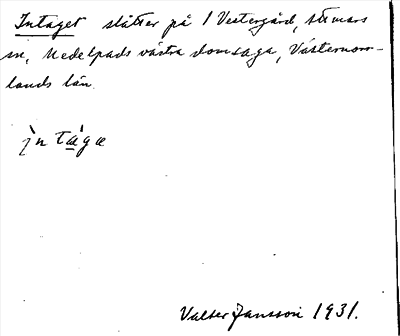 Intaget slåtter på 1 Vestergård, Stemars
sn, Medelpads västra domsaga, Västernorr-
lands län.
i̖n ta̖gæ
Valter Jansson 1931.